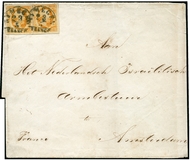 Aan
Het Nederlandsch Israëlitisch
Armbestuur
Franco Amsterdam